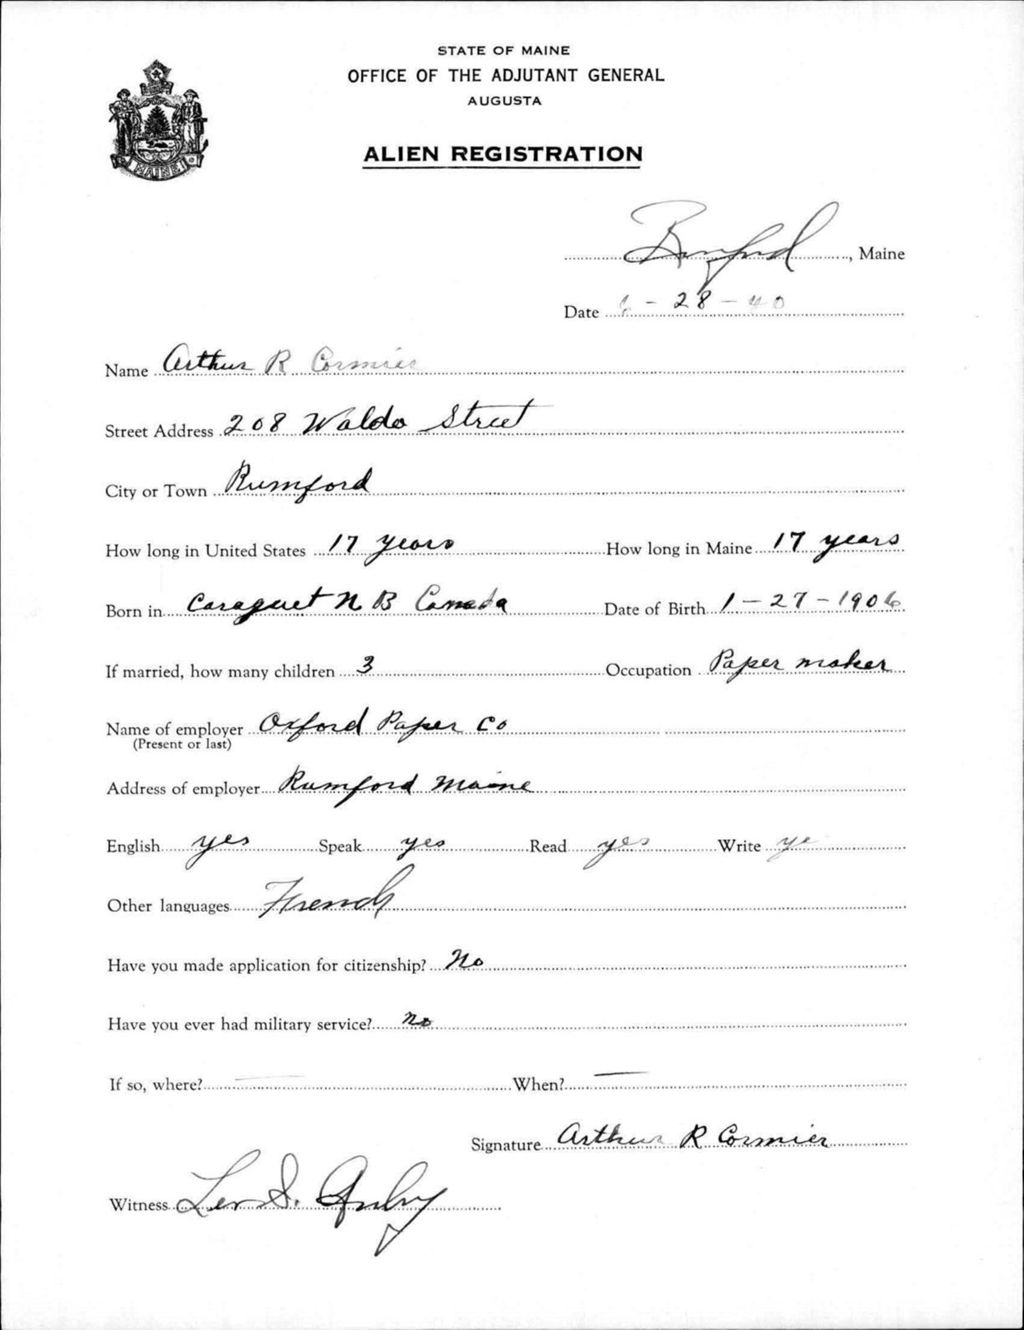 STATE OF MAINE
OFFICE OF THE ADJUTANT GENERAL
AUGUSTA
ALIEN REGISTRATION
MAINE
Rumford, Maine
Date 6-28-40
Name Arthur R Cormier
Street Address 208 Waldo Street
City or Town Rumford
How long in United States 17 years How long in Maine 17 years
Born in Caraquet N B Canada Date of Birth 1-27-1906
If married, how many children 3 Occupation Paper maker
Name of employer Oxford Paper Co
(Present or last)
Address of employer Rumford Maine
English yes Speak yes Read yes Write yes
Other languages French
Have you made application for citizenship? No
Have you ever had military service? No
If so, where? — When? —
Signature Arthur R Cormier
Witness